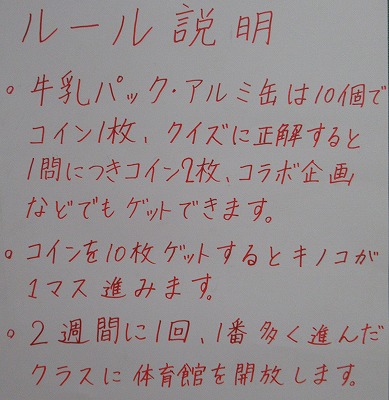 ルール説明
。牛乳パック・アルミ缶は10個で
コイン1枚、クイズに正解すると
1問につきコイン2枚、コラボ企画
などでもゲットできます。
。コインを10枚ゲットするとキノコが
1マス進みます。
。2週間に1回、1番多く進んだ
クラスに体育館を開放します。